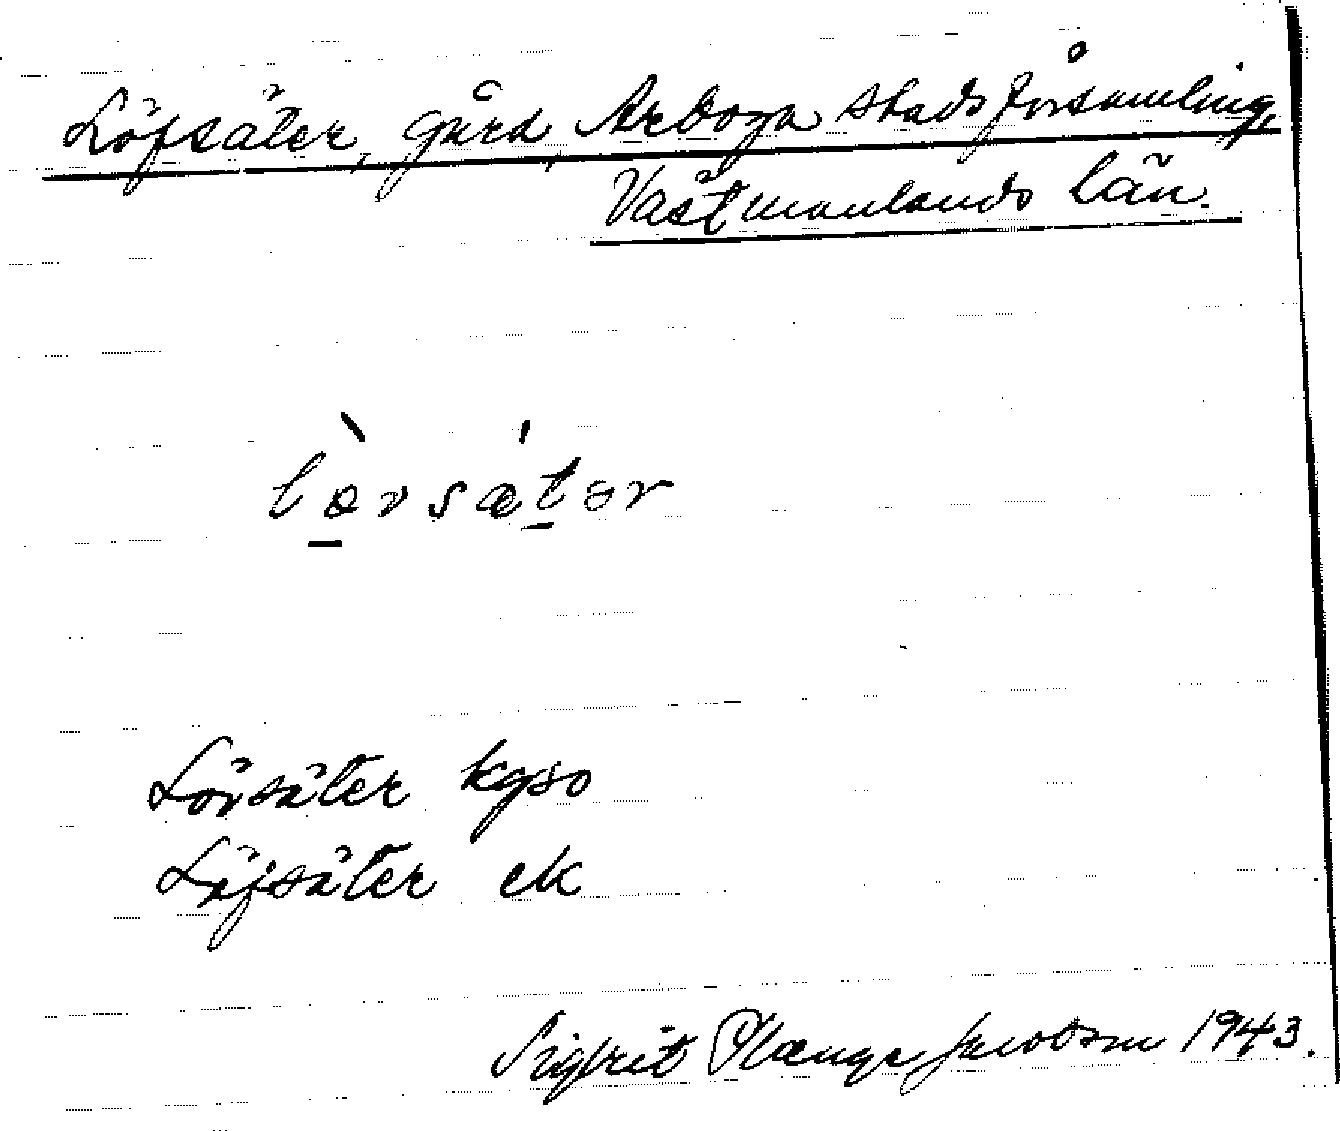 Löfsäter, gård, Arboga stadsförsamling,
Västmanlands län.
lөvsætər
Lövsäter kgso
Löfsäter ek
Sigfrid Plange Jacobson 1943.